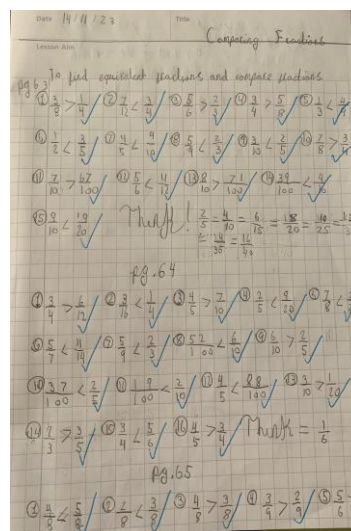 Date 14/11/23 Title
Comparing Fractions
Lesson Aim
To find equivalent fractions and compare fractions
pg 63
① 3/8 > 1/4 ② 7/12 < 3/4 ③ 5/6 > 2/3 ④ 3/4 > 5/8 ⑤ 1/3 <
⑥ 1/2 < 3/5 ⑦ 4/5 < 9/10 ⑧ 5/9 < 2/3 ⑨ 3/10 < 2/5 ⑩ 7/8 > 3/4
⑪ 7/10 > 67/100 ⑫ 5/6 < 11/12 ⑬ 8/10 > 71/100 ⑭ 39/100 <
⑮ 9/10 < 19/20 Think! 2/5 = 4/10 = 6/15 = = 10/25 =
= 14/35 = 16/40
pg.64
① 3/4 > 6/12 ② 3/16 < 1/4 ③ 4/5 > 7/10 ④ 2/5 < 9/20 ⑤ 7/8 <
⑥ 5/7 < 11/14 ⑦ 5/9 < 2/3 ⑧ 52/100 < 6/10 ⑨ 6/10 > 2/5
⑩ 37/100 < 2/5 ⑪ 19/100 < 2/10 ⑫ 4/5 < 88/100 ⑬ 3/10 > 1/20
⑭ 2/3 > 3/5 ⑮ 3/4 < 5/6 ⑯ 4/5 > 3/4 Think = 1/6
pg.65
① 4/8 < 5/8 ② 2/8 < 3/8 ③ 4/8 > 3/8 ④ 3/9 > 2/9 ⑤ 5/6